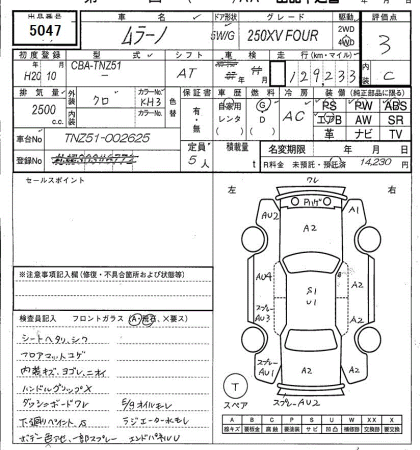 出品番号 車名 ドア形状 グレード 駆動 評価点
5047 ムラーノ 5W/G 250XV FOUR 2WD 4WD 3
初度登録 型式 シフト 車検 走行(km・マイル) 内装
H20 10 CBA-TNZ51 AT 129233 C
排気量 外装 カラーNo. 色替 保証書 車歴 燃料 冷房 装備(純正部品に限る)
2500 c.c. クロ KH3 有・無 自家用 レンタ G D AC PS PW ABS
内装 カラーNo. エアB AW SR
革 ナビ TV
車台No TNZ51-002625 定員 積載量 名変期限 年 月 日
登録No 5人 t R料金 未預託・預託済 14,230 円
セールスポイント
左 右
ワレ
AU2 A1
A2 A2
AU4 S U1 A2
スプレー AU3
スプレー AU1 A2 A2
スプレーAU2
T スペア
※注意事項記入欄(修復・不具合箇所および状態等)
検査員記入 フロントガラス(A・飛石、X要ス)
シートヘタリ、シワ
フロアマットコゲ
内装キズ、ヨゴレ、ニオイ
ハンドルグリップX
ダッシュボードワレ E/Gオイルモレ
下廻りペイント、S ラジエーター水モレ
ボデー色アセ、一部スプレー エンドパネルU
A B C P S U W XX X
線キズ 要板金 腐蝕 要塗装 サビ 凹凸 補修跡 交換跡 要交換